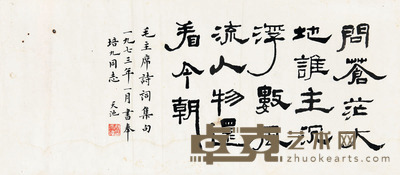 問蒼茫大
地誰主沉
浮數風
流人物還
看今朝
毛主席詩詞集句
一九七三年一月書奉
培九同志 天池
卓克艺术网
zhuokearts.com